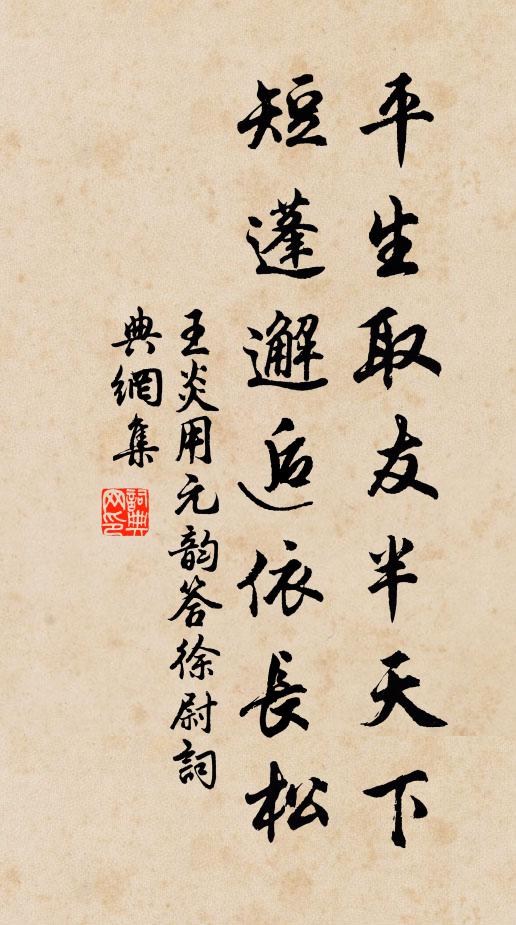 平生取友半天下
短蓬邂逅依長松
王炎用元韵答徐尉詞
典網集
詞典网印